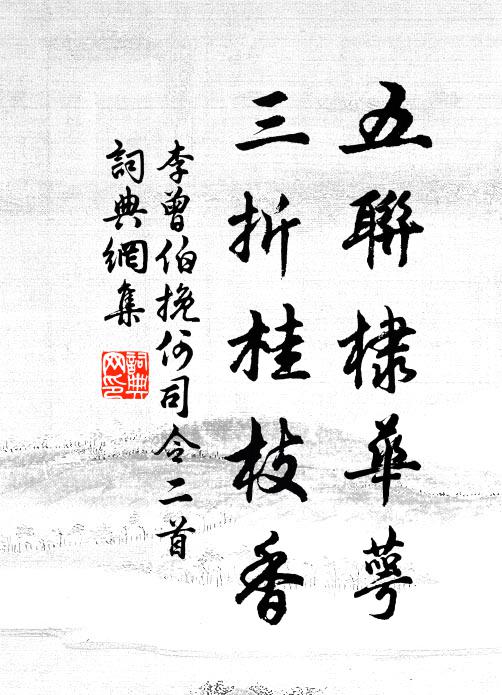 五聯棣華萼
三折桂枝香
李曾伯挽何司令二首
詞典網集
詞典網印